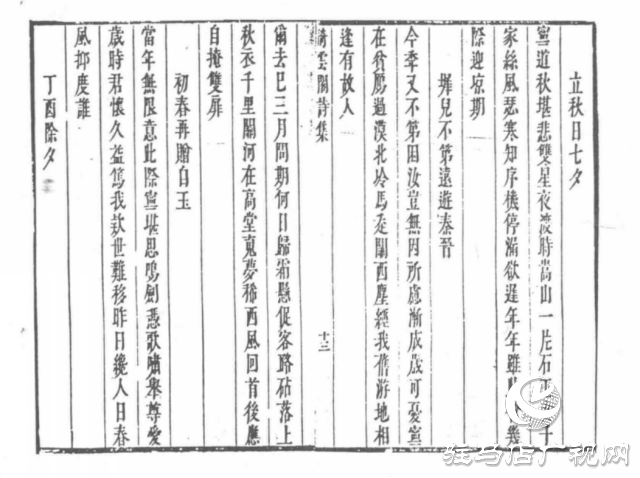 立秋日七夕
寧道秋堪悲雙星夜渡時嵩山一片石千
家絲風瑟寒知序機停漏欲遲年年雖幾
際迎凉期
擇兒不第遠遊秦晉
今季又不第困汝豈無因所慮漸成歲可憂寧
在貧鴈過漠北冷馬走關西塵經我舊游地相
逢有故人
綺雲閣詩集
十三
爾去巳三月問期何日歸霜懸促客路砧落上
秋衣千里關河在高堂寬夢稀西風回首後應
自掩雙扉
初春再贈白玉
當年無限意此際寧堪思鳴劍憑歌嘯舉尊愛
歲時君懷久益篤我欵世難移昨日纔人日春
風抑度誰
丁酉除夕
驻马店广视网